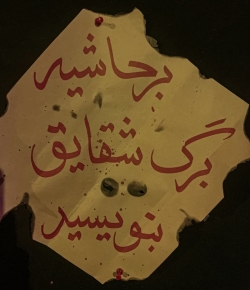 بر حاشیه
برگ شقایق
بنویسید